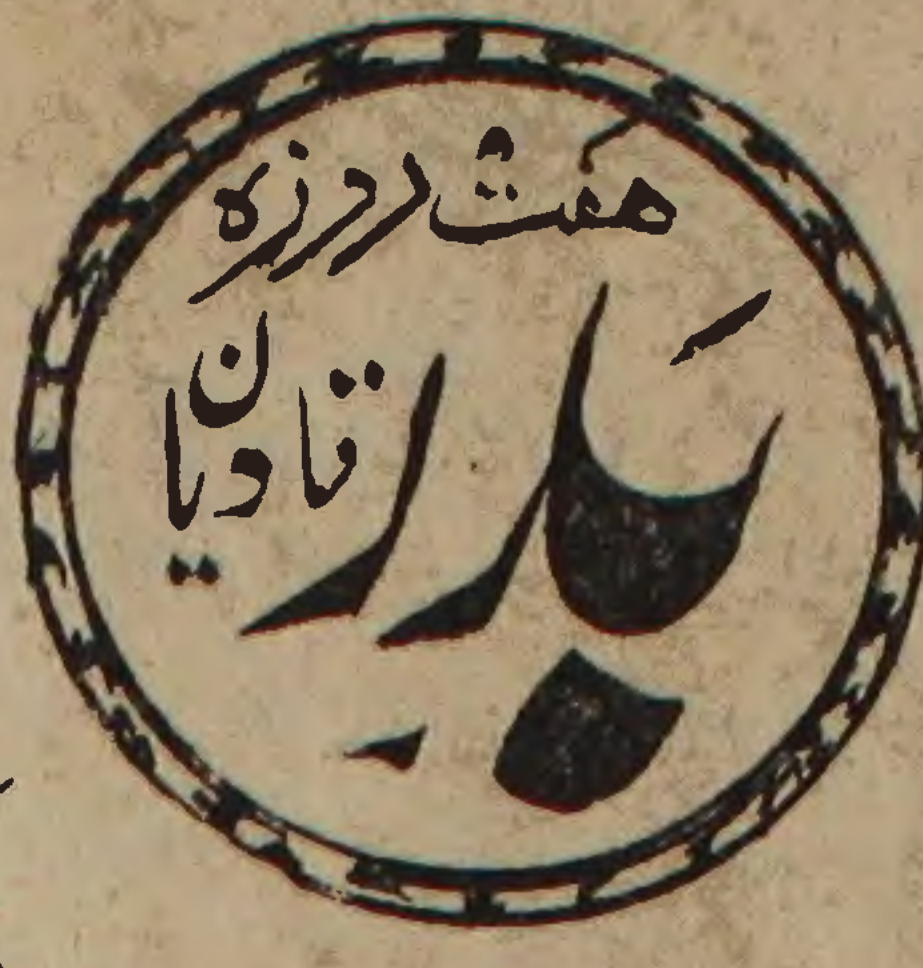 ہفت روزہ
بَدر
قادیان